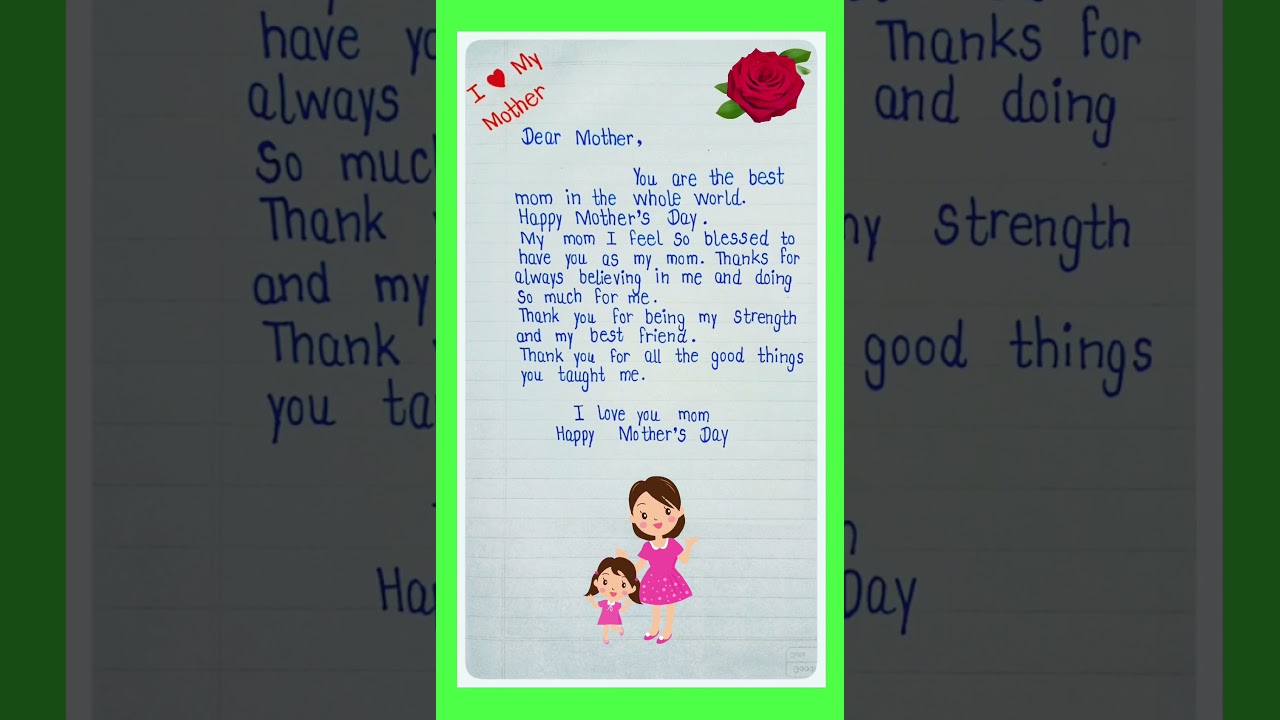 I ❤ My
Mother
Dear Mother,
You are the best
mom in the whole world.
Happy Mother's Day.
My mom I feel so blessed to
have you as my mom. Thanks for
always believing in me and doing
so much for me.
Thank you for being my strength
and my best friend.
Thank you for all the good things
you taught me.
I love you mom
Happy Mother's Day